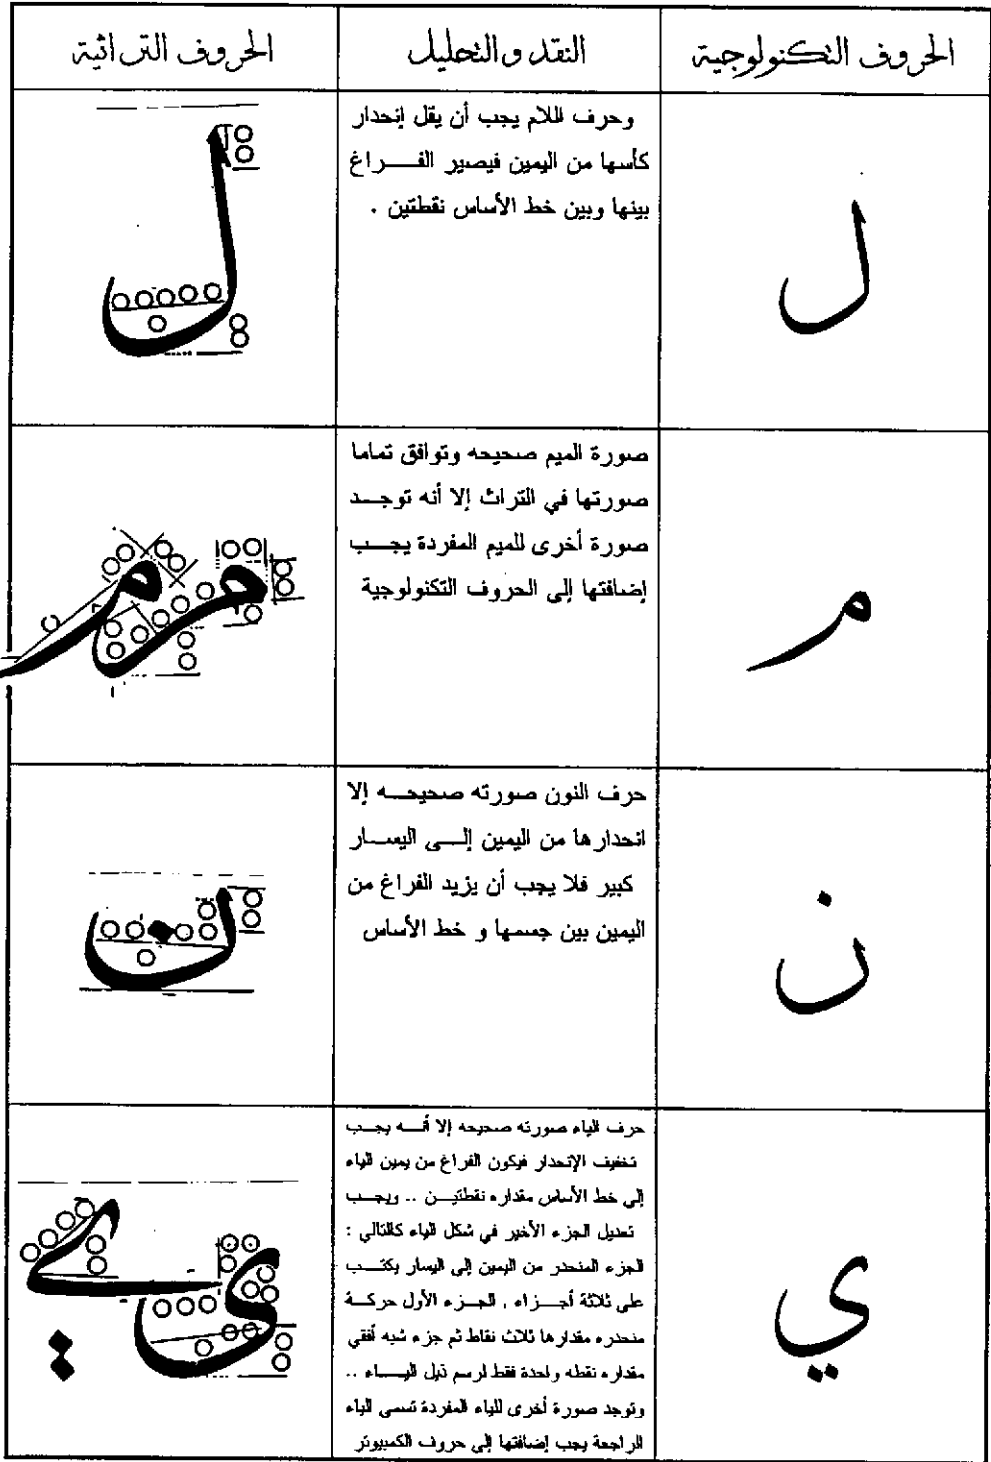 الحروف التكنولوجية
النقد والتحليل
الحروف التراثية
ل
وحرف اللام يجب أن يقل إنحدار
كأسها من اليمين فيصير الفـــراغ
بينها وبين خط الأساس نقطتين .
ل
م
صورة الميم صحيحه وتوافق تماما
صورتها في التراث إلا أنه توجــد
صورة أخرى للميم المفردة يجــب
إضافتها إلى الحروف التكنولوجية
م م
ن
حرف النون صورته صحيحــه إلا
انحدارها من اليمين إلــى اليســار
كبير فلا يجب أن يزيد الفراغ من
اليمين بين جسمها و خط الأساس
ن
ي
حرف الياء صورته صحيحه إلا أنــه يجــب
تخفيف الإنحدار فيكون الفراغ من يمين الياء
إلى خط الأساس مقداره نقطتيــن .. ويجــب
تعديل الجزء الأخير في شكل الياء كالتالي :
الجزء المنحدر من اليمين إلى اليسار يكتــب
على ثلاثة أجــزاء , الجــزء الأول حركــة
منحدره مقدارها ثلاث نقاط ثم جزء شبه أفقي
مقداره نقطه واحدة فقط لرسم ذيل اليــاء ..
وتوجد صورة أخرى للياء المفردة تسمى الياء
الراجعة يجب إضافتها إلى حروف الكمبيوتر
ي ے